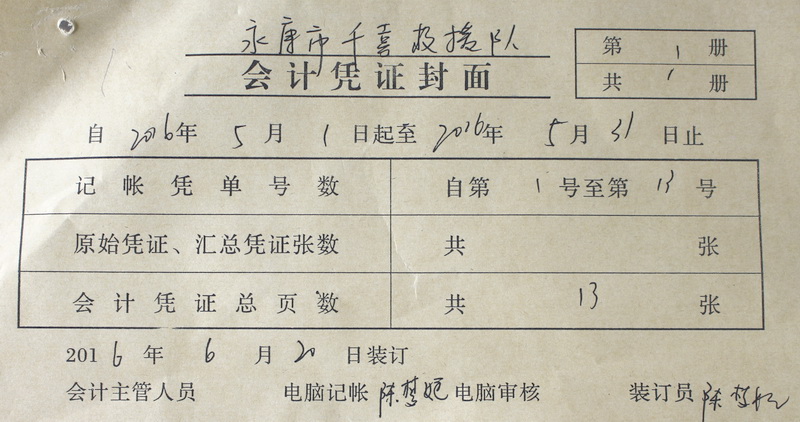 永康市千喜救援队
会计凭证封面
第 1 册
共 1 册
自 2016年 5 月 1 日起至 2016年 5 月 31 日止
记帐凭单号数 自第 1 号至第 13 号
原始凭证、汇总凭证张数 共 张
会计凭证总页数 共 13 张
2016 年 6 月 20 日装订
会计主管人员 电脑记帐 陈梦妮 电脑审核 装订员 陈梦妮